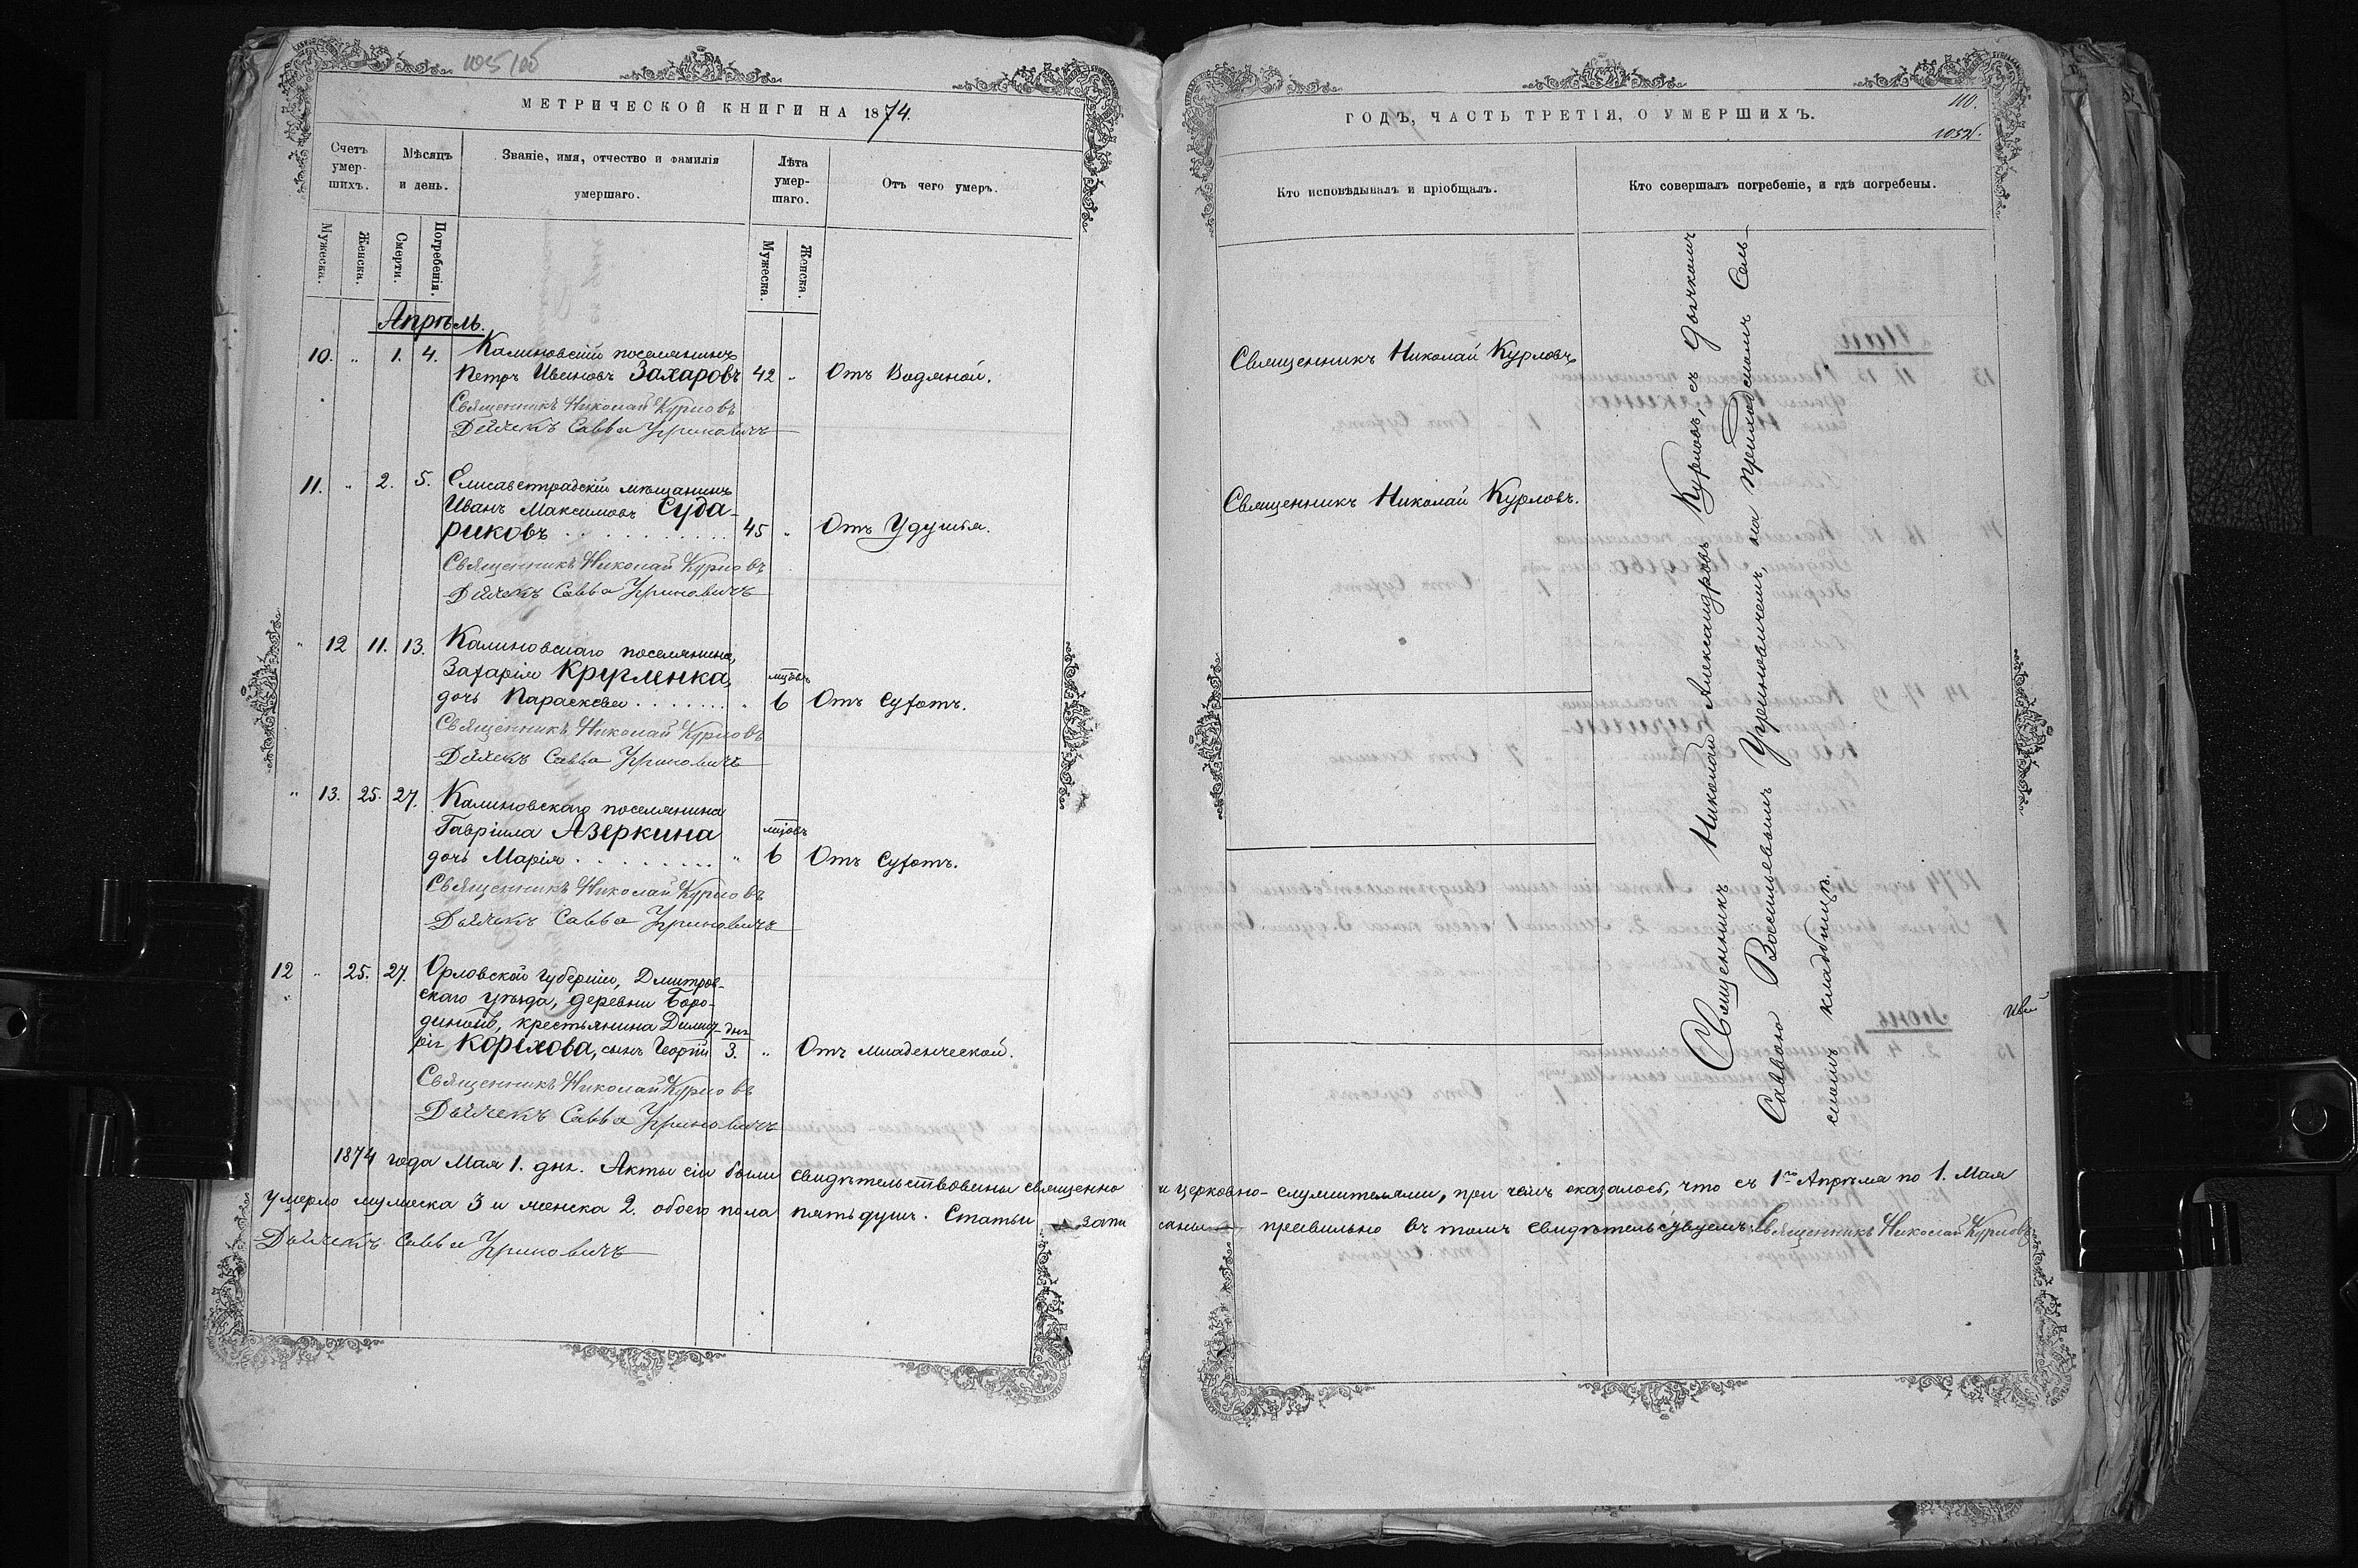 105 об
МЕТРИЧЕСКОЙ КНИГИ НА 1874.
Счетъ умер-шихъ.
Мѣсяцъ и день.
Званіе, имя, отчество и фамилія умершаго.
Лѣта умер-шаго.
Отъ чего умеръ.
Мужеска.
Женска.
Смерти.
Погребенія.
Мужеска.
Женска.
Апрѣль.
10. „ 1. 4. Калиновскій поселянинъ
Петръ Ивановъ Захаровъ 42 „ Отъ Водяной.
Священникъ Николай Курловъ
Дьячекъ Савва Уриновичъ
11. „ 2. 5. Елисаветградскій мѣщанинъ
Иванъ Максимовъ Суда-
риковъ 45 „ Отъ Удушья.
Священникъ Николай Курловъ
Дьячекъ Савва Уриновичъ
„ 12 11. 13. Калиновскаго поселянина,
Захарія Кругленка, мцовъ
дочь Параскева „ 6 Отъ Сухотъ.
Священникъ Николай Курловъ
Дьячекъ Савва Уриновичъ
„ 13. 25. 27. Калиновскаго поселянина
Гавріила Азеркина мцовъ
дочь Марія „ 6 Отъ Сухотъ.
Священникъ Николай Курловъ
Дьячекъ Савва Уриновичъ
12 „ 25. 27. Орловской губерніи, Дмитров-
скаго уѣзда, деревни Боро-
диной, крестьянина Дмит- дня
рія Коріхова, сынъ Георгій 3. „ Отъ младенческой.
Священникъ Николай Курловъ
Дьячекъ Савва Уриновичъ
1874 года Мая 1. дня. Акты сіи были свидѣтельствованы священно
умерло мужеска 3 и женска 2. обоего пола пять душъ. Статьи запи
Дьячекъ Савва Уриновичъ
ГОДЪ, ЧАСТЬ ТРЕТІЯ, О УМЕРШИХЪ.
110.
1052.
Кто исповѣдывалъ и пріобщалъ.
Кто совершалъ погребеніе, и гдѣ погребены.
Священникъ Николай Курловъ
Священникъ Николай Курловъ.
Священникъ Николай Александровъ Курловъ, съ дьячкомъ
Саввою Васильевымъ Уриновичемъ, на приходскомъ Сель-
скомъ кладбищѣ.
и церковно-служителями, при чемъ оказалось, что съ 1го Апрѣля по 1. Мая
саны правильно въ томъ свидѣтельствуемъ: Священникъ Николай Курловъ